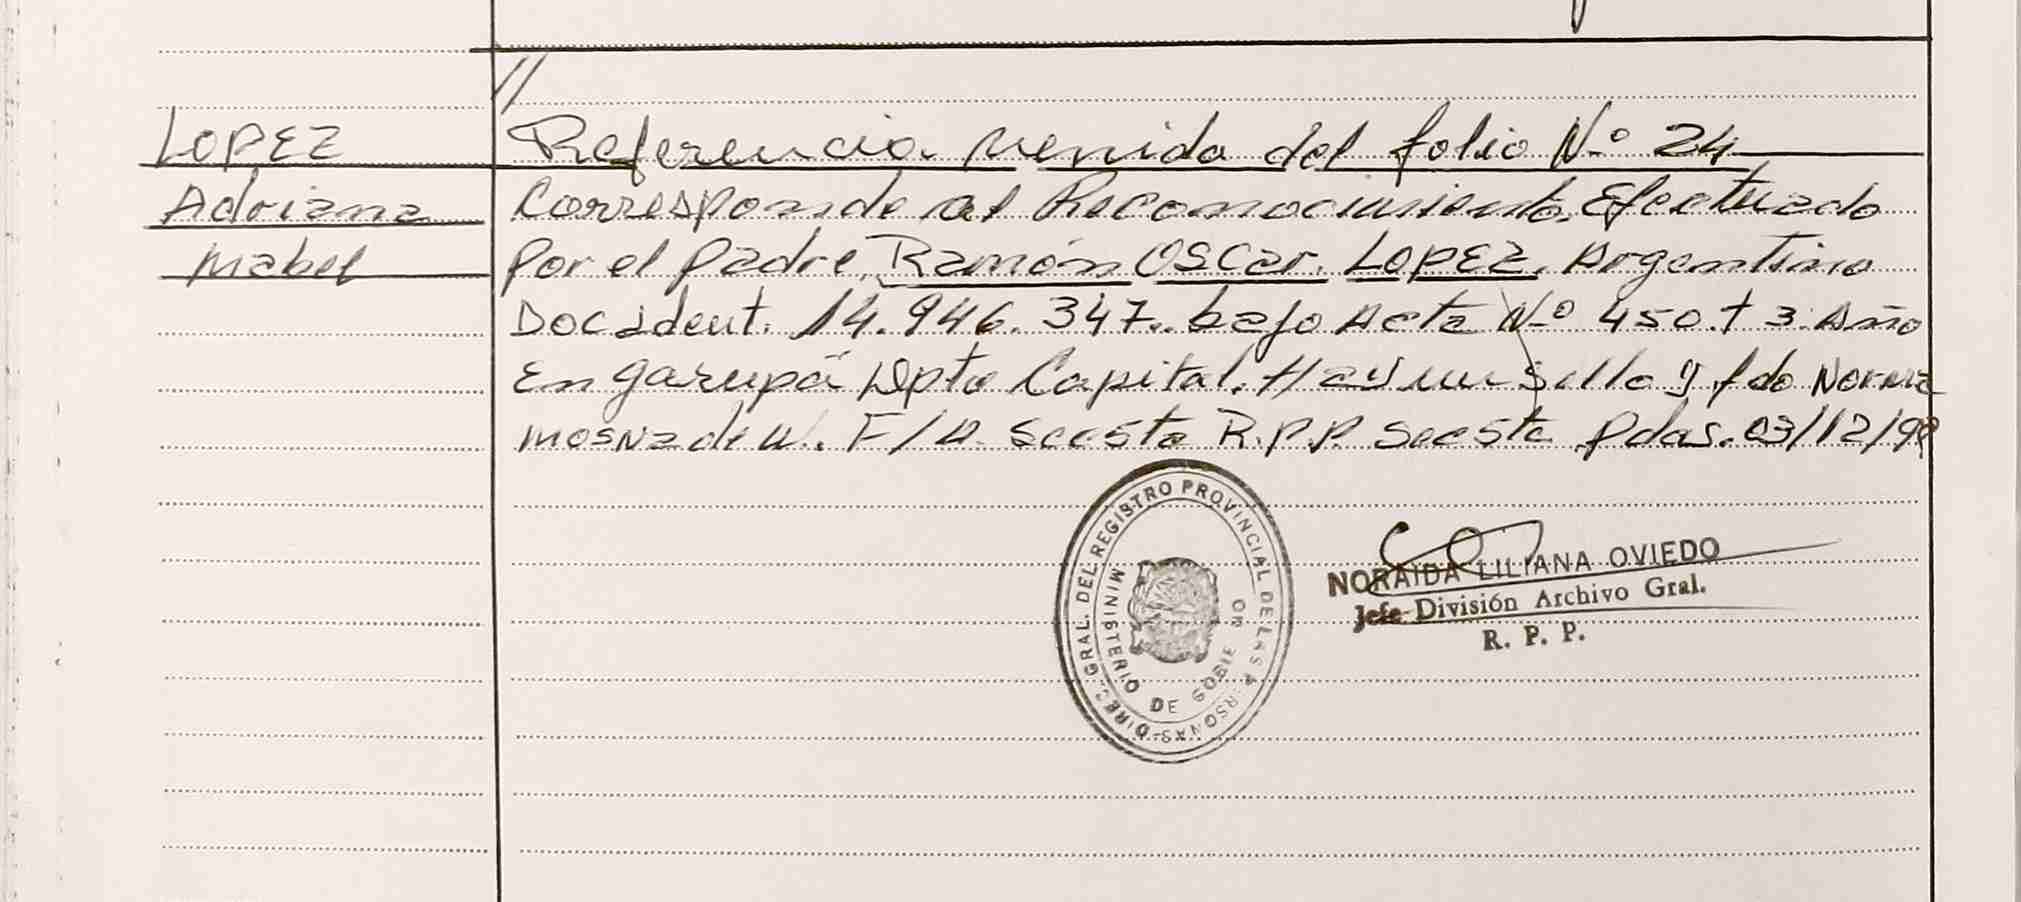 //
LOPEZ
Adriana
Mabel
Referencia venida del folio Nº 24
Corresponde al Reconocimiento. Efectuado
por el padre, Ramón Oscar. LOPEZ. Argentino
Doc ident. 14.946.347. bajo Acta Nº 450. t 3. Año
En garupá Dpto Capital. Hay un sello y fdo Norma
de F/D. R.P.P. Pdas. 03/12/99
DIREC. GRAL. DEL REGISTRO PROVINCIAL DE LAS PERSONAS
MINISTERIO DE GOBIE NO
NORAIDA LILIANA OVIEDO
Jefe División Archivo Gral.
R. P. P.